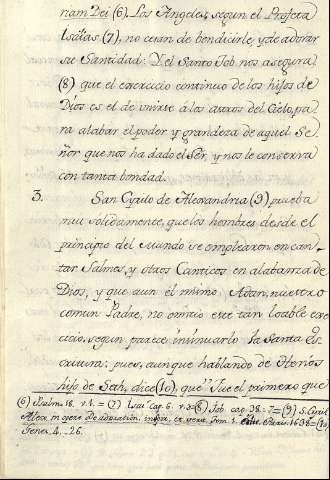 riam Dei (6). Los Angeles, segun el Profeta
Isaías (7), no cesan de bendicirle, y de adorar
su Santidad: Y el Santo Job nos asegura
(8) que el exercicio continuo de los hijos de
Dios es el de unirse á los astros del Cielo, pa
ra alabar el poder y grandeza de aquel Se
ñor que nos ha dado el Sér, y nos le conserva
con tanta bondad.
3. San Cyrilo de Alexandria (9) prueba
mui solidamente, que los hombres desde el
principio del Mundo se emplearon en can-
tar Salmos, y otros Canticos en alabanza de
Dios, y que aun el mismo Adan, nuestro
comun Padre, no omitió este tan loable exer
cicio, segun parece insinuarlo la Santa Es
critura; pues, aunque hablando de Henòs
hijo de Seth, dice (10), que fue el primero que
(6) Psalm. 18. v. 1. = (7) Isai. cap. 6. v. 3. = (8) Job. cap. 38. 7 = (9) S. Cyril.
Alex. in opere de adoration. in spir. et verit. Tom. 1. edit. Paris. 1638 = (10)
Genes. 4. 26.